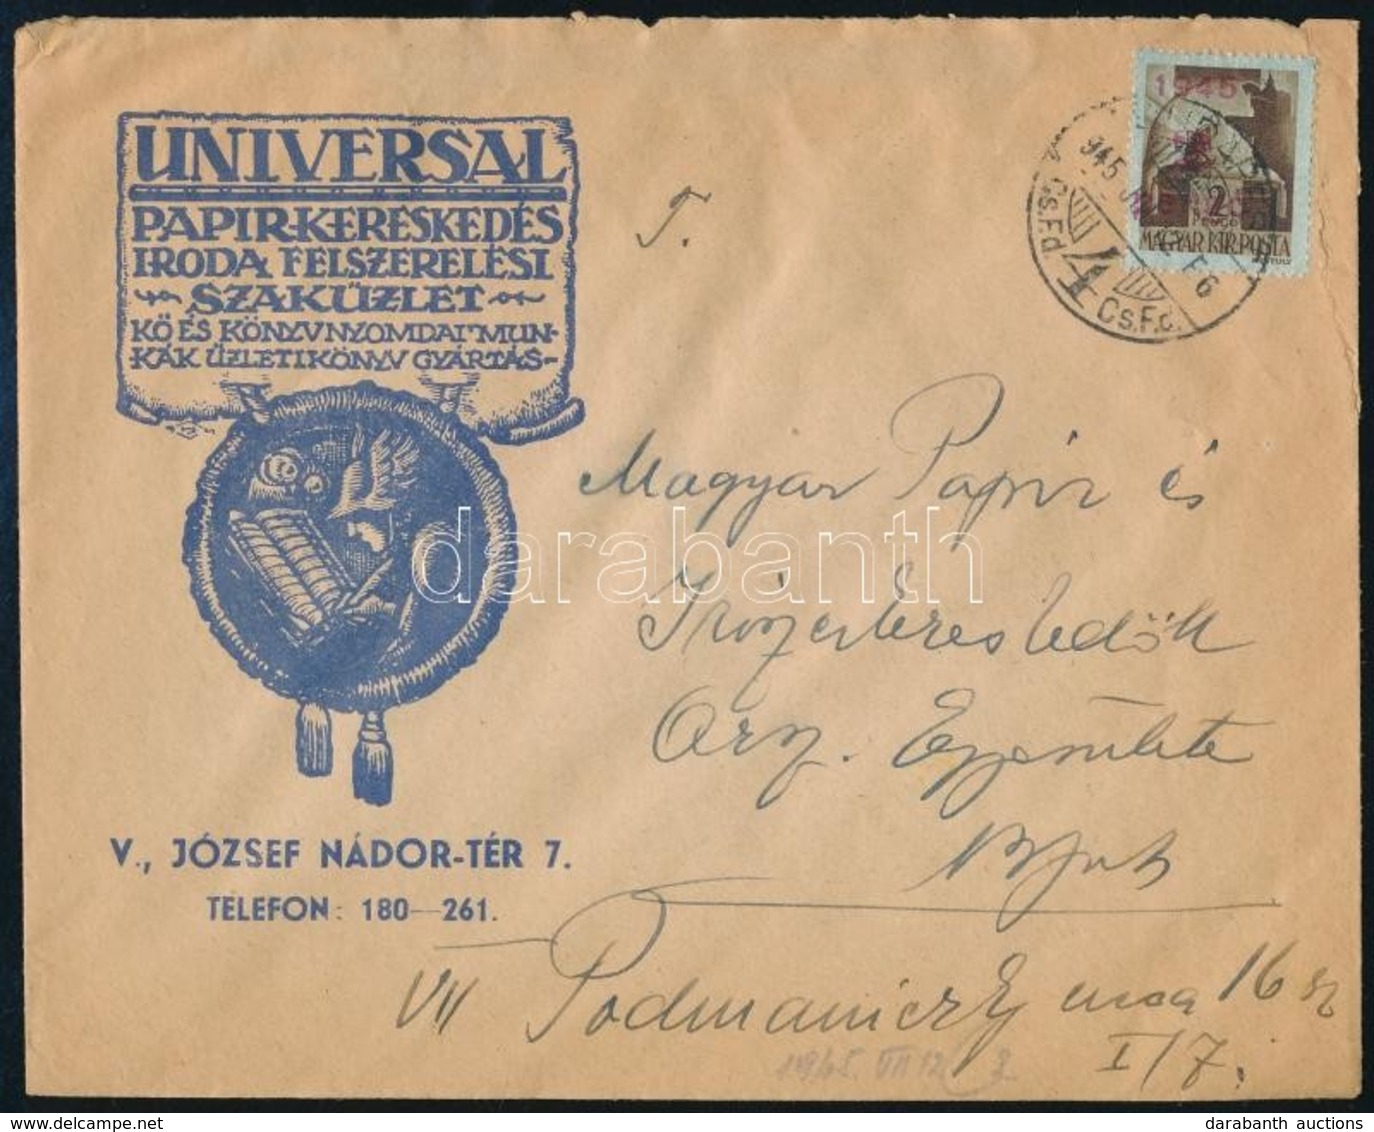 UNIVERSAL
PAPIRKERESKEDÉS
IRODA FELSZERELÉSI
SZAKÜZLET
KŐ ÉS KÖNYVNYOMDAI MUN-
KÁK ÜZLETIKÖNYV GYÁRTÁS-
V., JÓZSEF NÁDOR-TÉR 7.
TELEFON: 180—261.
1945
2
PENGŐ
MAGYAR KIR. POSTA
945
F6
Cs.F.d 4 Cs.F.c.
T.
Magyar Papir és
Irószerkereskedők
Orsz. Egyesülete
Bpest
VII Podmaniczky ucca 16 sz
I/7.
1945. VII 12
darabanth
darabanth auctions